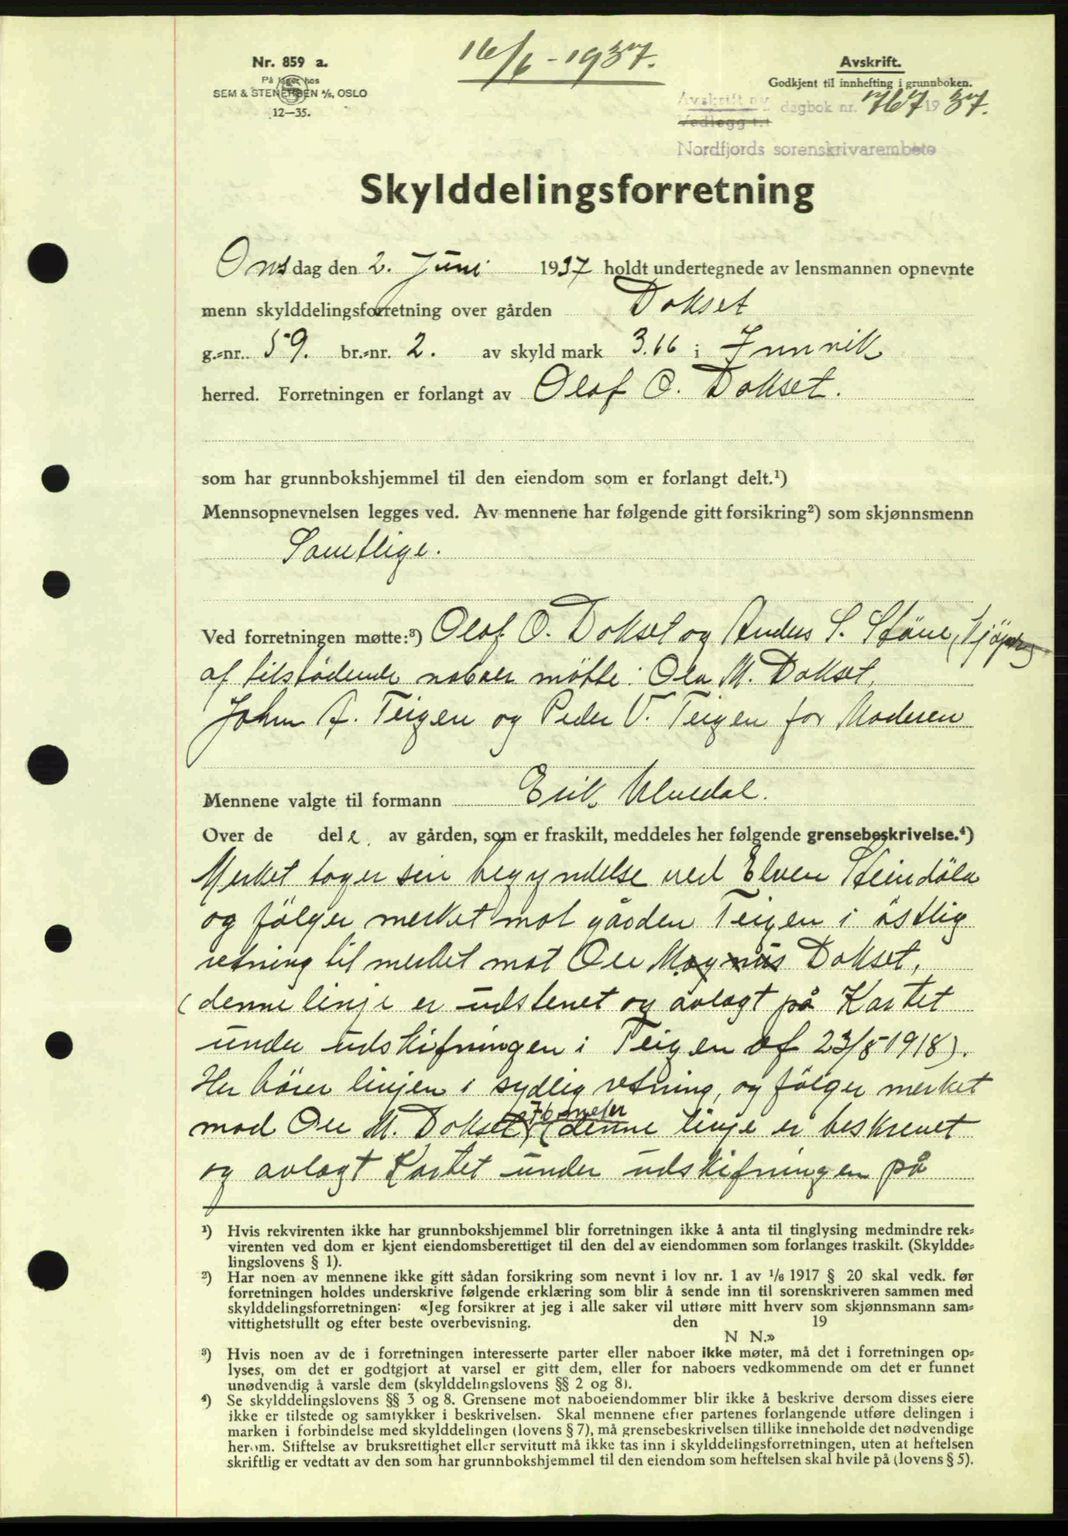 16/6-1937.
Nr. 859 a.
På lager hos
SEM & STENERSEN A/S, OSLO
12-35.
Avskrift.
Godkjent til innhefting i grunnboken.
Avskrift av
Vedlegg t.t
dagbok nr. 767 1937.
Nordfjords sorenskrivarembete
Skylddelingsforretning
Onsdag den 2. Juni 1937 holdt undertegnede av lensmannen opnevnte
menn skylddelingsforretning over gården Dokset
g.-nr. 59. br.-nr. 2. av skyld mark 3.66 i Innvik
herred. Forretningen er forlangt av Olaf O. Dokset.
som har grunnbokshjemmel til den eiendom som er forlangt delt.¹)
Mennsopnevnelsen legges ved. Av mennene har følgende gitt forsikring²) som skjønnsmenn
Samtlige.
Ved forretningen møtte:³) Olaf O. Dokset og Anders S. (kjöper)
af tilstødende naboer mötte: Ola M. Dokset,
John A. Teigen og Peder V. Teigen for Moderen
Mennene valgte til formann Erik
Over de del e. av gården, som er fraskilt, meddeles her følgende grensebeskrivelse.⁴)
Merket tager sin begyndelse ved Elven Steindöla
og fölger merket mot gården Teigen i östlig
retning til merket mot Ole Magnus Dokset,
(denne linje er udstenet og avlagt på Kartet
under udskifningen i Teigen af 23/5-1918).
Her börer linjen i sydlig retning, og fölger merket
mod Ole M. Dokset, 76 meter (denne linje er beskrevet
og avlagt Kartet under udskifningen på
¹) Hvis rekvirenten ikke har grunnbokshjemmel blir forretningen ikke å anta til tinglysing medmindre rek-
virenten ved dom er kjent eiendomsberettiget til den del av eiendommen som forlanges fraskilt. (Skyldde-
lingslovens § 1).
²) Har noen av mennene ikke gitt sådan forsikring som nevnt i lov nr. 1 av 1/6 1917 § 20 skal vedk. før
forretningen holdes underskrive følgende erklæring som blir å sende inn til sorenskriveren sammen med
skylddelingsforretningen: «Jeg forsikrer at jeg i alle saker vil utføre mitt hverv som skjønnsmann sam-
vittighetsfullt og efter beste overbevisning. den 19
N N.»
³) Hvis noen av de i forretningen interesserte parter eller naboer ikke møter, må det i forretningen op-
lyses, om det er godtgjort at varsel er gitt dem, eller for naboers vedkommende om det er funnet
unødvendig å varsle dem (skylddelingslovens §§ 2 og 8).
⁴) Se skylddelingslovens §§ 3 og 8. Grensene mot naboeiendommer blir ikke å beskrive dersom disses eiere
ikke er tilstede og samtykker i beskrivelsen. Skal mennene efter partenes forlangende utføre delingen i
marken i forbindelse med skylddelingen (lovens § 7), må grensebeskrivelsen tillike inneholde det nødvendige
herom. Stiftelse av bruksrettighet eller servitutt må ikke tas inn i skylddelingsforretningen, uten at heftelsen
skriftlig er vedtatt av den som har grunnbokshjemmel til den eiendom som heftelsen skal hvile på (lovens § 5).